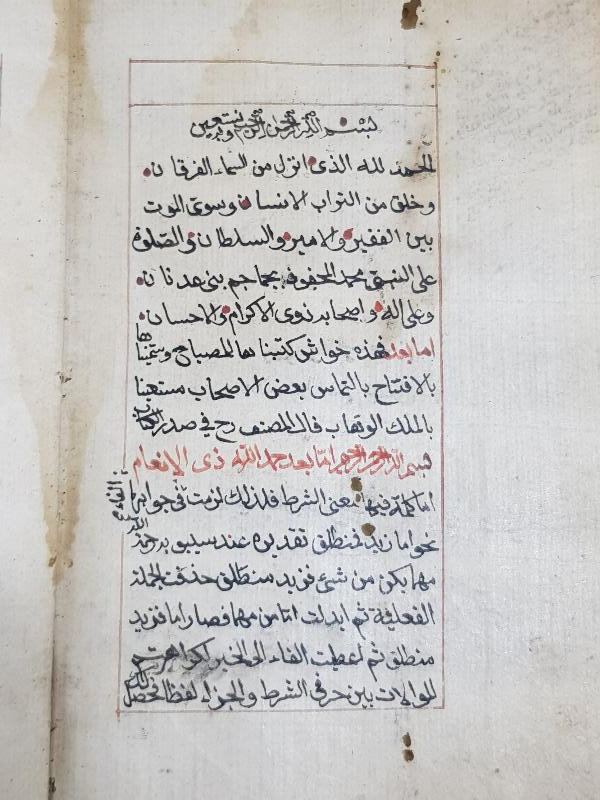 بسم الله الرحمن الرحيم وبه نستعين
الحمد لله الذى انزل من السماء الفرقان
وخلق من التراب الانسان وسوى الموت
بين الفقير والامير والسلطان والصلوة
على النبى محمد المحفوف بجماجم بنى عدنان
وعلى اله واصحابه ذوى الاكرام والاحسان
اما بعد فهذه حواش كتبناها للمصباح وسميناها
بالافتتاح بالتماس بعض الاصحاب مستعينا
بالملك الوهاب قال المصنف رح فى صدر الكتاب
بسم الله الرحمن الرحيم اما بعد حمد الله ذى الانعام
اما كلمة فيها معنى الشرط فلذلك لزمت فى جوابها الفاء
نحو اما زيد فمنطلق تقديره عند سيبويه رحمة الله
مهما يكن من شئ فزيد منطلق حذفت الجملة
الفعلية ثم ابدلت اما من مهما فصار اما فزيد
منطلق ثم اعطيت الفاء الى الخبر
للموالات بين حرفى الشرط والجزاء لفظا